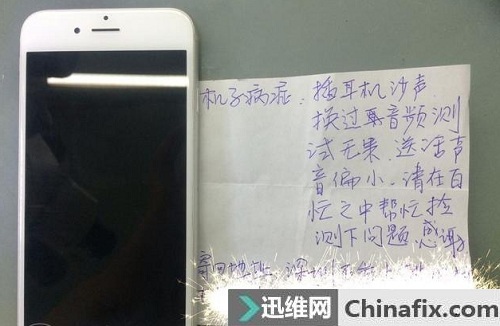 机子病症：插耳机沙声
换过耳音频测
试无果,送话声
音偏小,请在百
忙之中帮忙检
测下问题感谢
寄回地址:深圳
迅维网
Chinafix.com